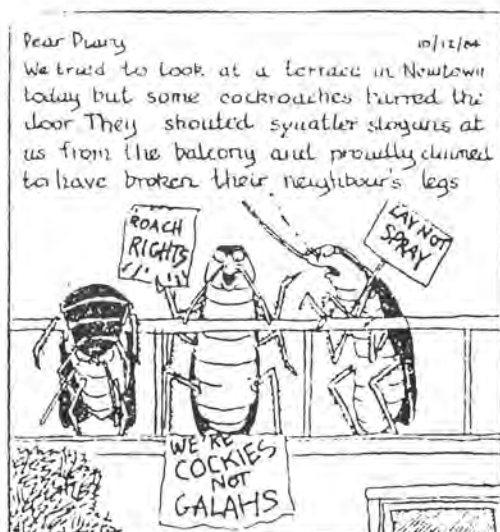 Dear Diary 10/12/84
We tried to look at a terrace in Newtown
today but some cockroaches barred the
door They shouted squatter slogans at
us from the balcony and proudly claimed
to have broken their neighbour's legs
ROACH
RIGHTS
LAY NOT
SPRAY
WE'RE
COCKIES
NOT
GALAHS